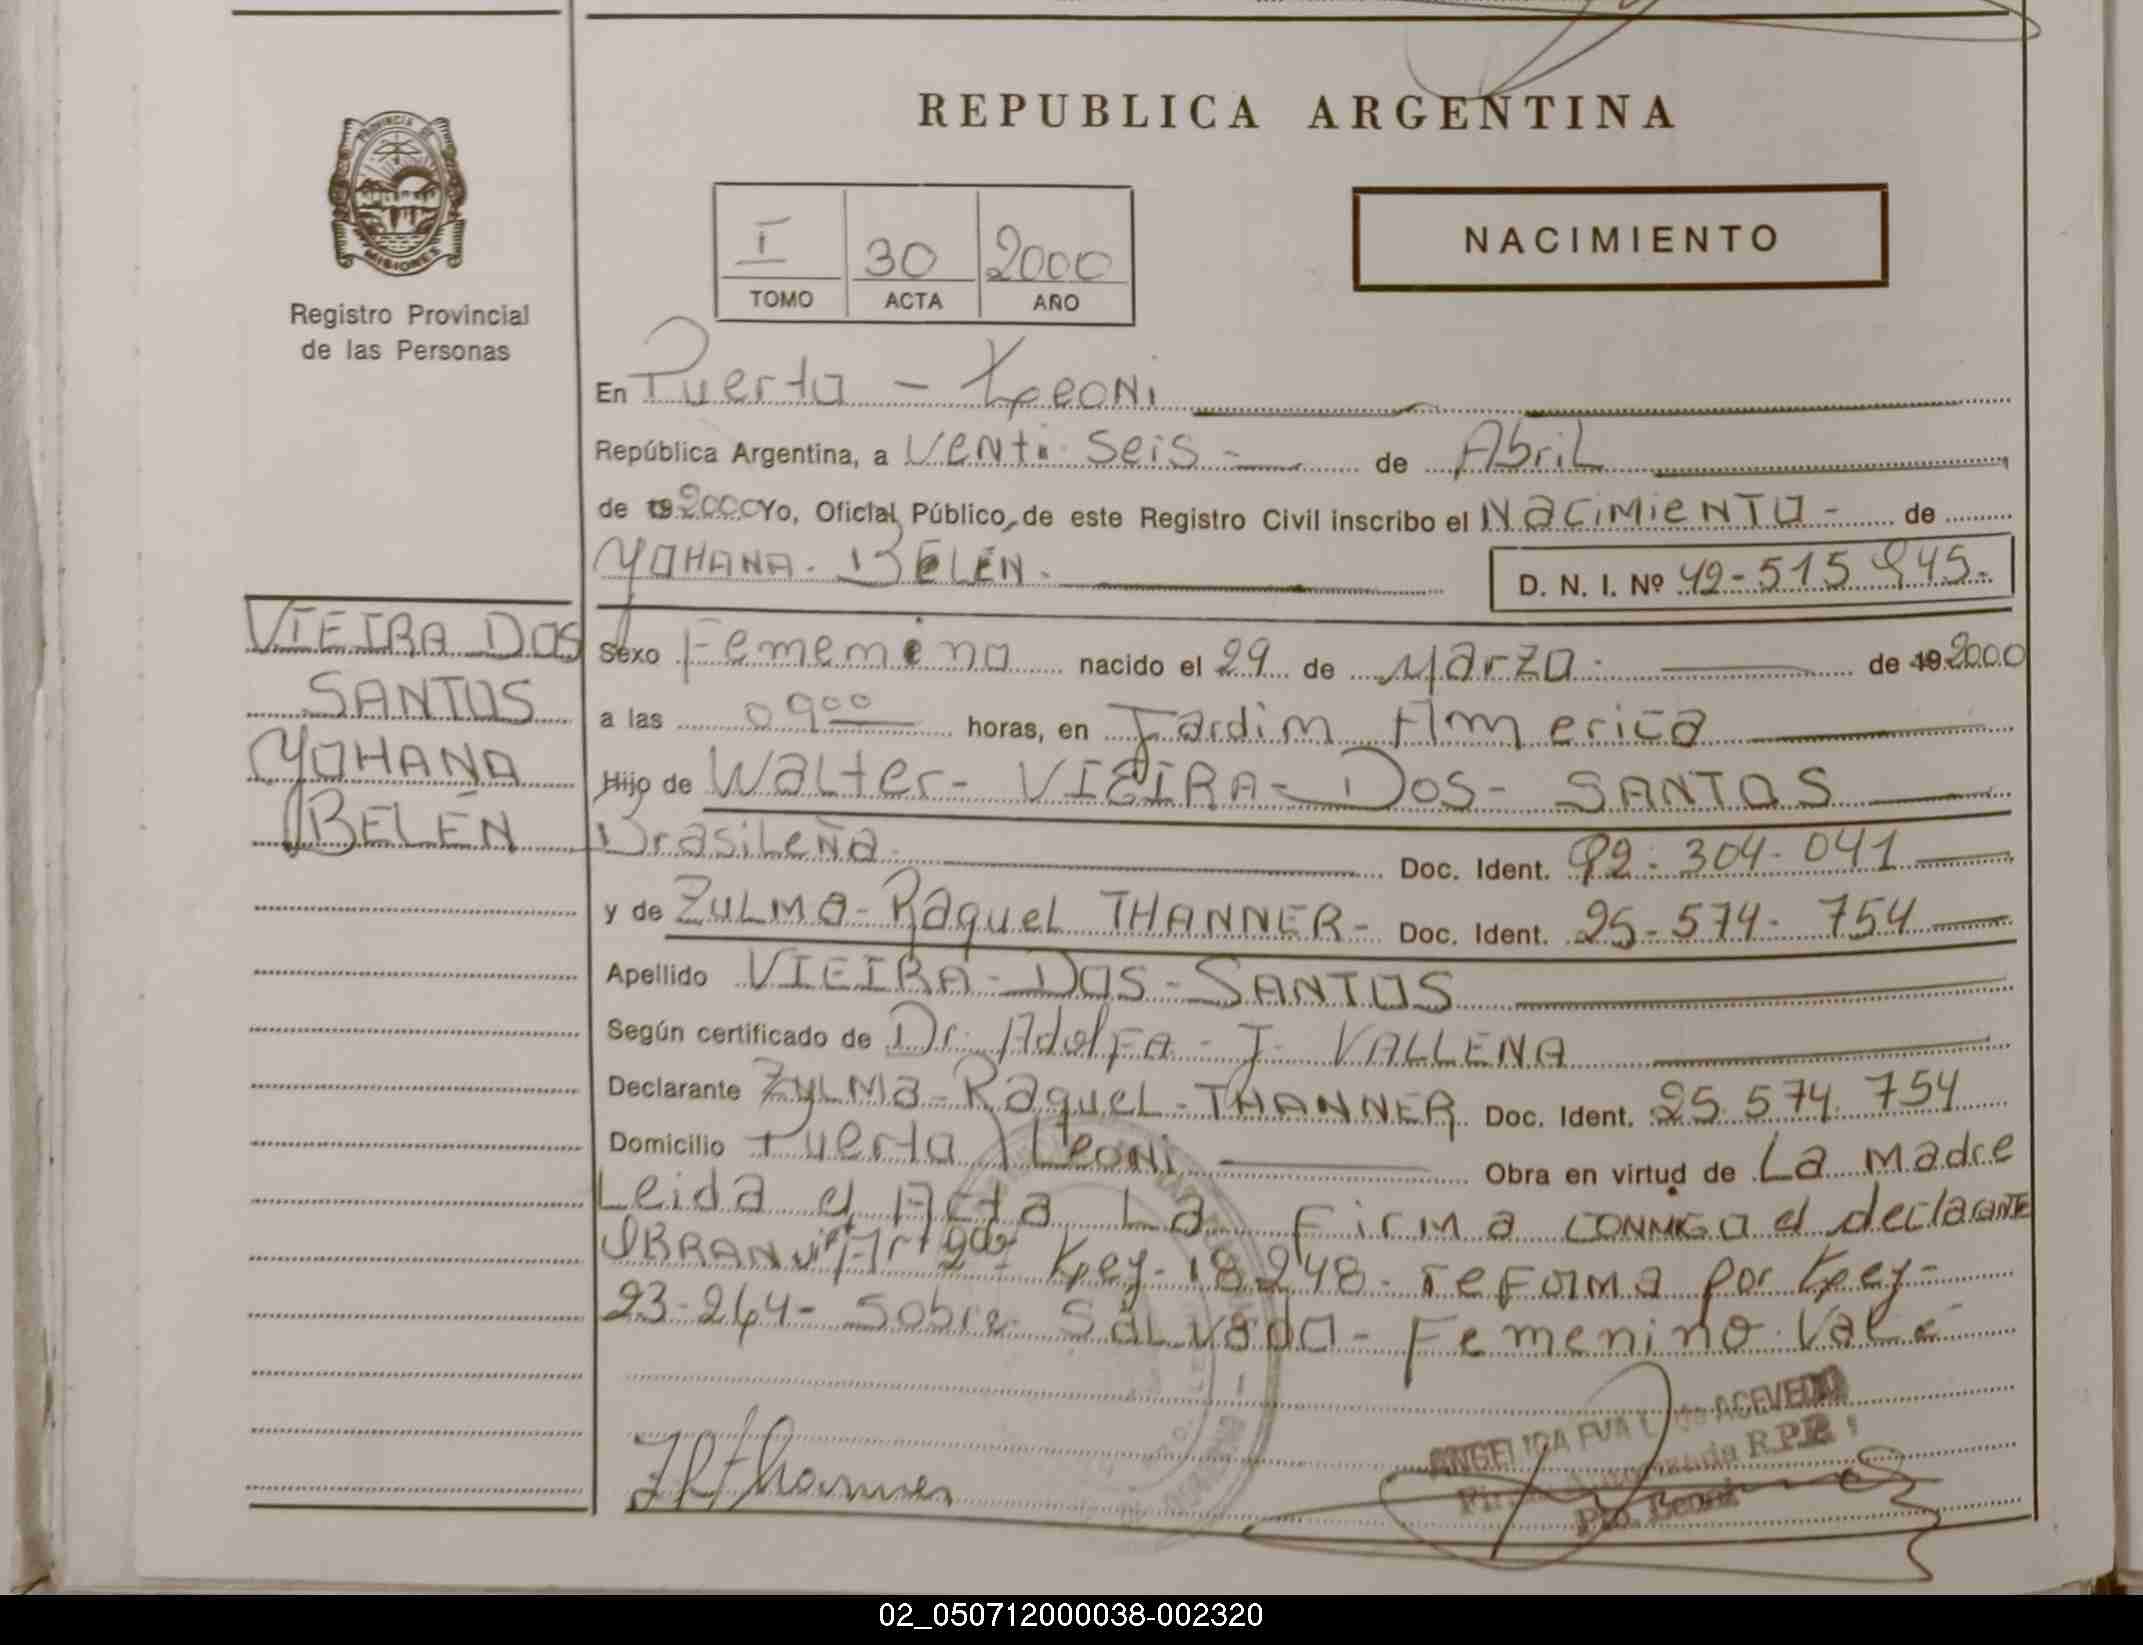 REPUBLICA ARGENTINA
PROVINCIA DE
MISIONES
Registro Provincial
de las Personas
I 30 2000
TOMO ACTA AÑO
NACIMIENTO
En Puerto - Leoni
República Argentina, a Venti Seis - de Abril
de 19 2000 Yo, Oficial Público, de este Registro Civil inscribo el Nacimiento - de
YOHANA. BELÉN.
D. N. I. Nº 42-515 945.
VIEIRA DOS
SANTOS
YOHANA
BELÉN
Sexo Fememino nacido el 29 de Marzo. de 19 2000
a las 09 00 horas, en Jardim America
Hijo de Walter - VIEIRA - DOS - SANTOS
Brasileña Doc. Ident. 92-304-041
y de ZULMA - Raquel THANNER - Doc. Ident. 25-574-754
Apellido VIEIRA - DOS - SANTOS
Según certificado de Dr. Adolfo - J. VALLENA
Declarante ZULMA - Raquel - THANNER Doc. Ident. 25.574.754
Domicilio Puerto Leoni Obra en virtud de La madre
Leida el Acta La Firma conmigo el declarante
Art 2do Ley - 18248 - reforma por Ley -
23-264 - Sobre Salvado - Femenino. Vale
ZRThanner
ANGELICA EVA de ACEVEDO
R.P.P.
Pto. Leoni
02_050712000038-002320